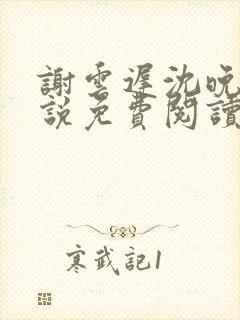 謝雲遲沈晚
說免費閱讀
寒武記1